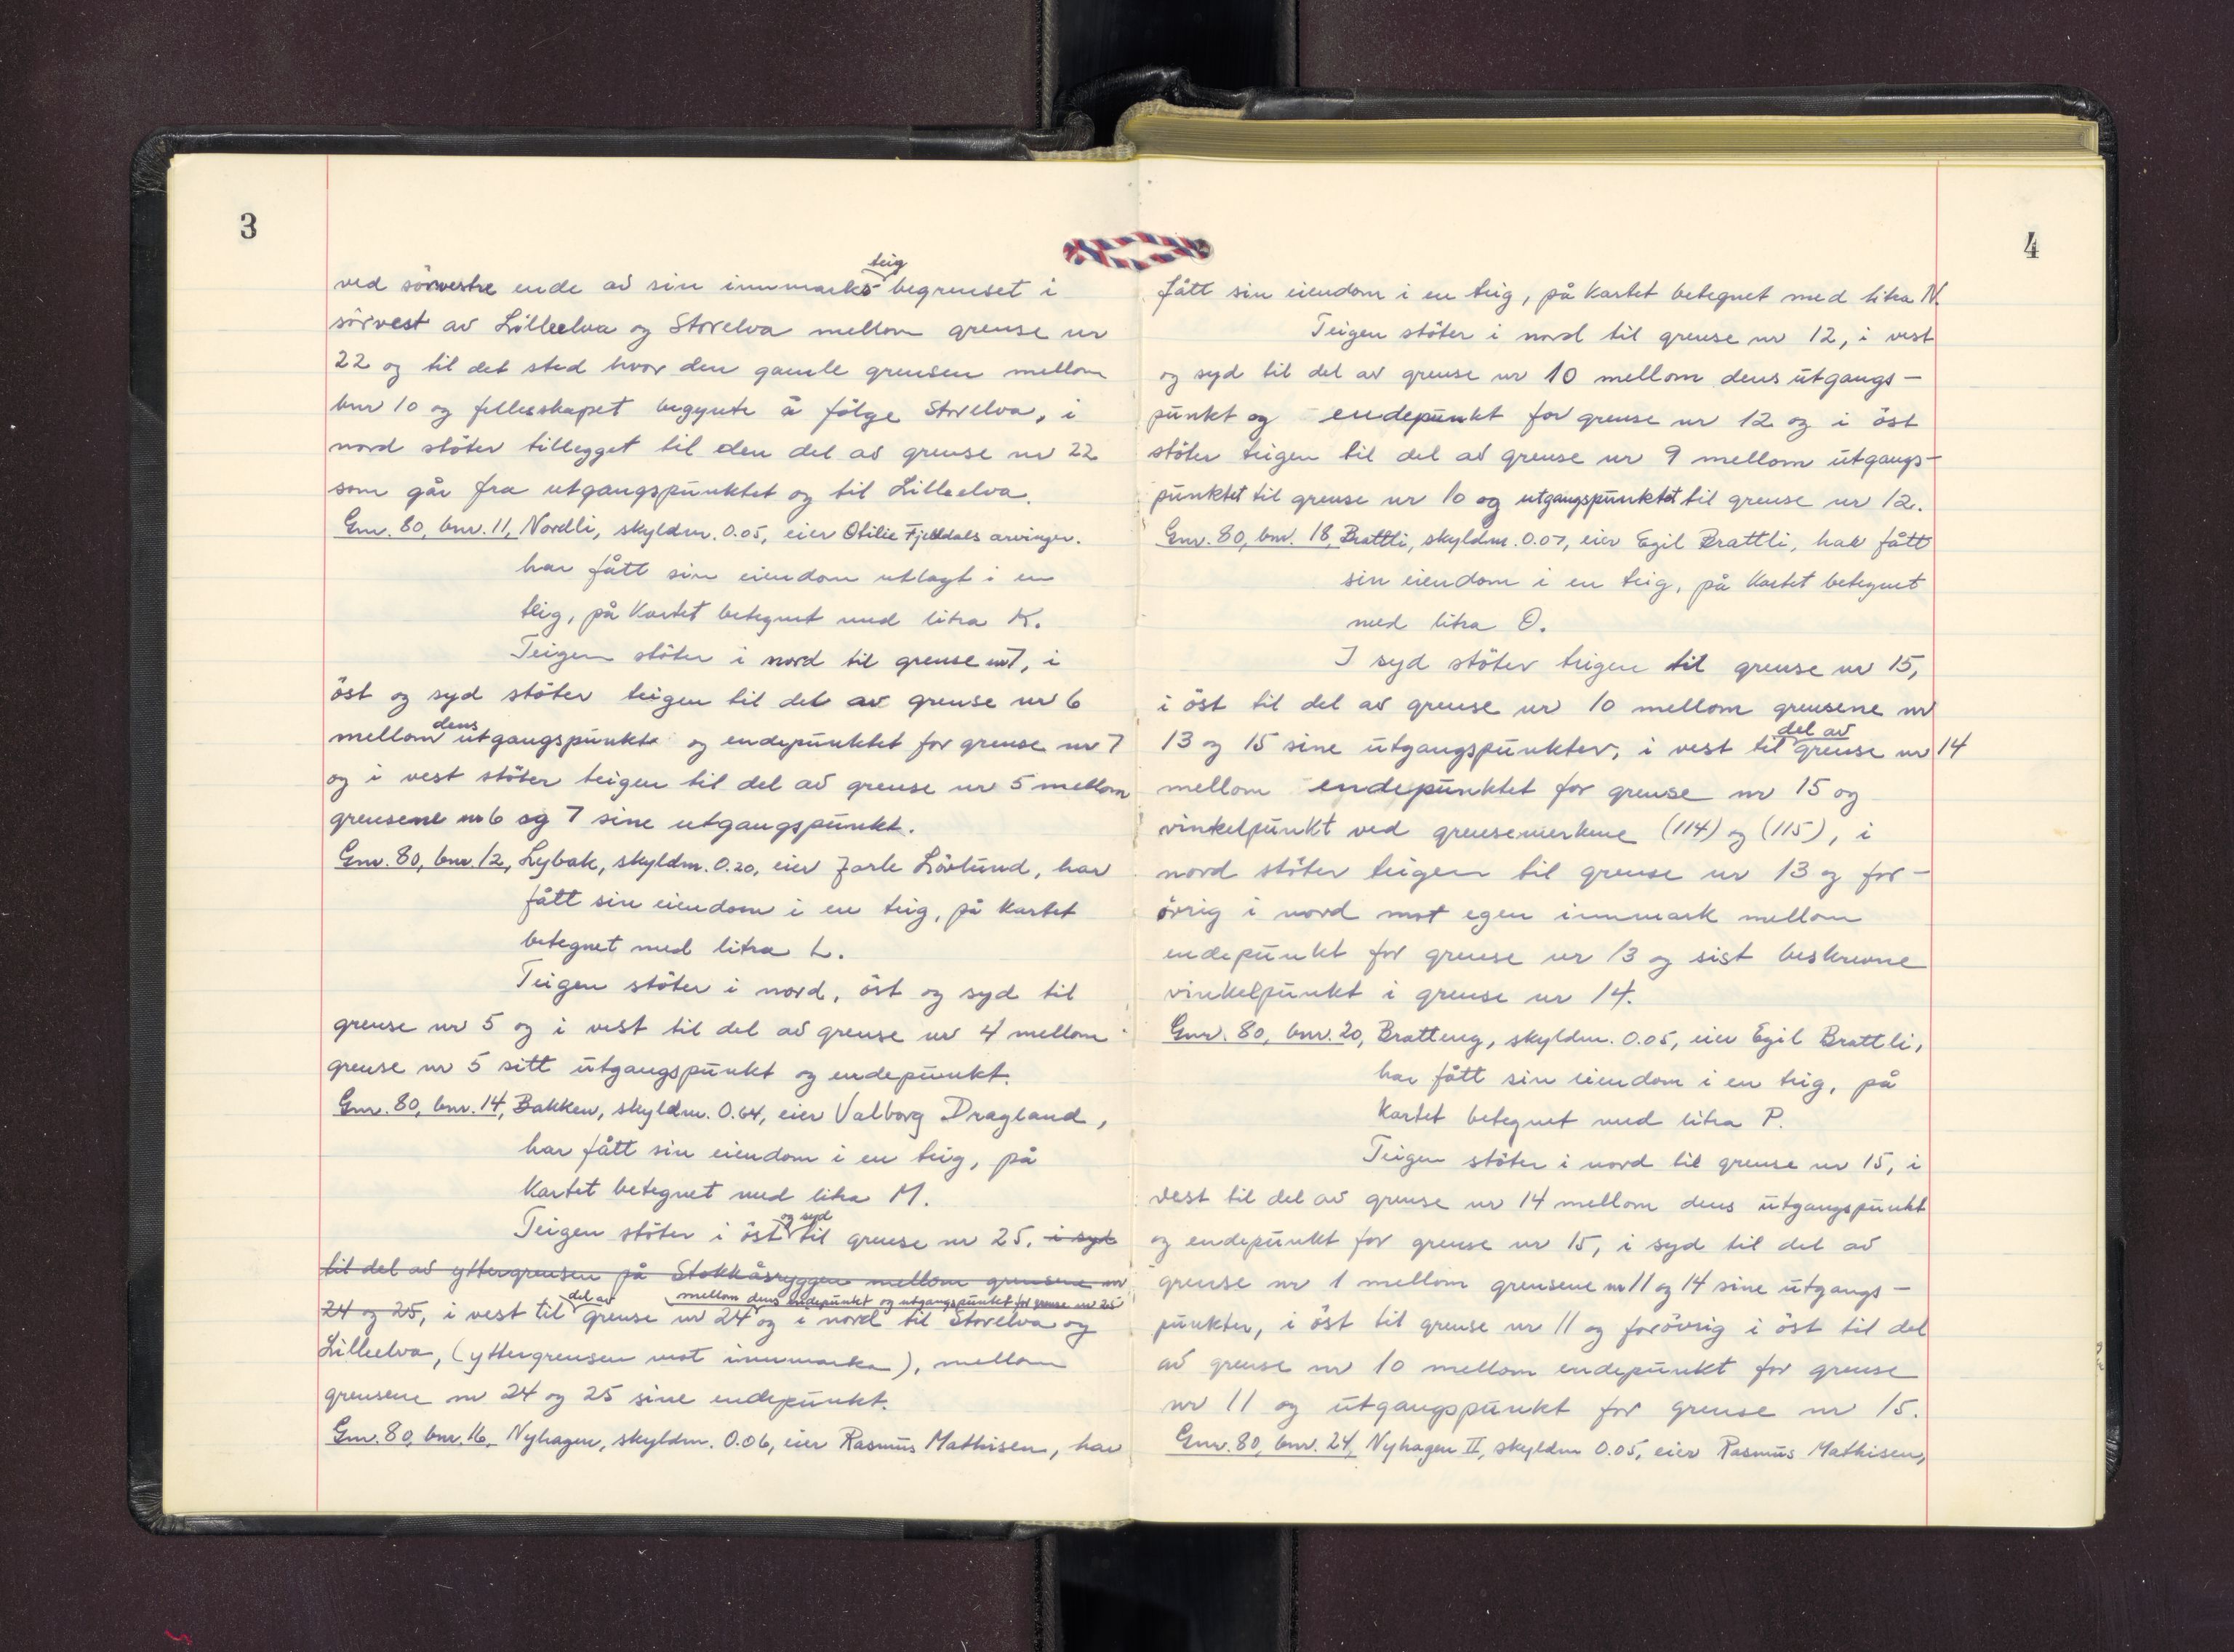 3
ved sörvestre ende av sin innmarks-teig begrenset i
sörvest av Lilleelva og Storelva mellom grense nr
22 og til det sted hvor den gamle grensen mellom
bnr 10 og fellesskapet begynte å fölge Storelva, i
nord stöter tillegget til den del av grense nr 22
som går fra utgangspunktet og til Lilleelva.
Gnr. 80, bnr. 11, Nordli, skyldm. 0.05, eier Otilie Fjelldals arvinger.
har fått sin eiendom utlagt i en
teig, på kartet betegnet med litra K.
Teigen stöter i nord til grense nr 7, i
öst og syd stöter teigen til del av grense nr 6
mellom dens utgangspunkt og endepunktet for grense nr 7
og i vest stöter teigen til del av grense nr 5 mellom
grensene nr 6 og 7 sine utgangspunkt.
Gnr. 80, bnr. 12, Lybak, skyldm. 0.20, eier Jarle Lövlund, har
fått sin eiendom i en teig, på kartet
betegnet med litra L.
Teigen stöter i nord, öst og syd til
grense nr 5 og i vest til del av grense nr 4 mellom
grense nr 5 sitt utgangspunkt og endepunkt.
Gnr. 80, bnr. 14, Bakken, skyldm. 0.64, eier Valborg Dragland,
har fått sin eiendom i en teig, på
kartet betegnet med litra M.
Teigen stöter i öst og syd til grense nr 25, i syd
til del av yttergrensen på Stokkåsryggen mellom grensene nr
24 og 25, i vest til del av grense nr 24 mellom dens endepunkt og utgangspunkt for grense nr 25 og i nord til Storelva og
Lilleelva, (yttergrensen mot innmarka), mellom
grensene nr 24 og 25 sine endepunkt.
Gnr. 80, bnr. 16, Nyhagen, skyldm. 0.06, eier Rasmus Mathisen, har
4
fått sin eiendom i en teig, på kartet betegnet med litra N.
Teigen stöter i nord til grense nr 12, i vest
og syd til del av grense nr 10 mellom dens utgangs-
punkt og endepunkt for grense nr 12 og i öst
stöter teigen til del av grense nr 9 mellom utgangs-
punktet til grense nr 10 og utgangspunktet til grense nr 12.
Gnr. 80, bnr. 18, Brattli, skyldm. 0.07, eier Egil Brattli, har fått
sin eiendom i en teig, på kartet betegnet
med litra O.
I syd stöter teigen til grense nr 15,
i öst til del av grense nr 10 mellom grensene nr
13 og 15 sine utgangspunkter, i vest til del av grense nr 14
mellom endepunktet for grense nr 15 og
vinkelpunkt ved grensemerkene (114) og (115), i
nord stöter teigen til grense nr 13 og for-
övrig i nord mot egen innmark mellom
endepunkt for grense nr 13 og sist beskrevne
vinkelpunkt i grense nr 14.
Gnr. 80, bnr. 20, Bratteng, skyldm. 0.05, eier Egil Brattli,
har fått sin eiendom i en teig, på
kartet betegnet med litra P.
Teigen stöter i nord til grense nr 15, i
vest til del av grense nr 14 mellom dens utgangspunkt
og endepunkt for grense nr 15, i syd til del av
grense nr 1 mellom grensene nr 11 og 14 sine utgangs-
punkter, i öst til grense nr 11 og forövrig i öst til del
av grense nr 10 mellom endepunkt for grense
nr 11 og utgangspunkt for grense nr 15.
Gnr. 80, bnr. 24, Nyhagen II, skyldm 0.05, eier Rasmus Mathisen,